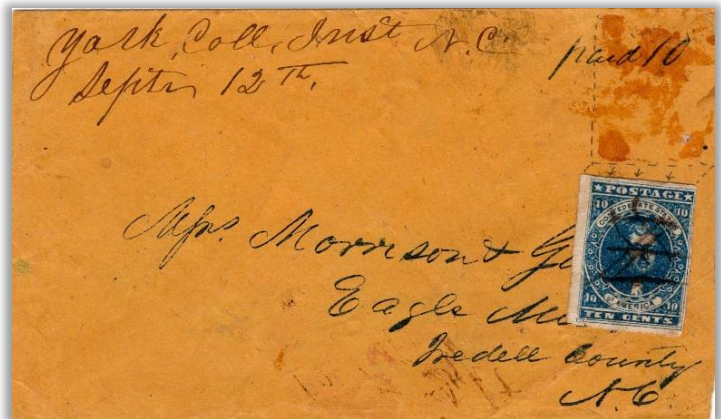 York, Coll, Inst N.C.
Septr 12th.
paid 10
POSTAGE
10 10
CONFEDERATE STATES
OF AMERICA
10 10
TEN CENTS
Morrison &
Eagle
Iredell County
N.C